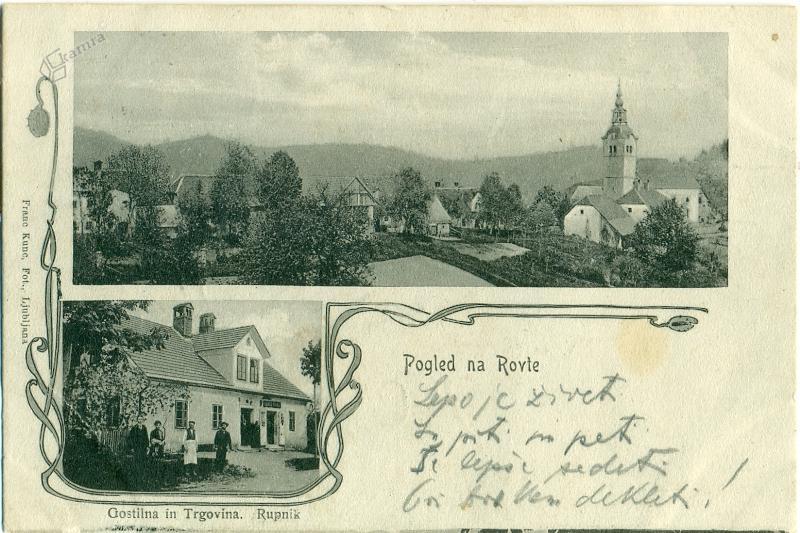 kamra
Franc Kunc, Fot., Ljubljana
Pogled na Rovte
Lepo je živet
in peti
Še lepše sedeti
dekleti!
Gostilna in Trgovina. Rupnik